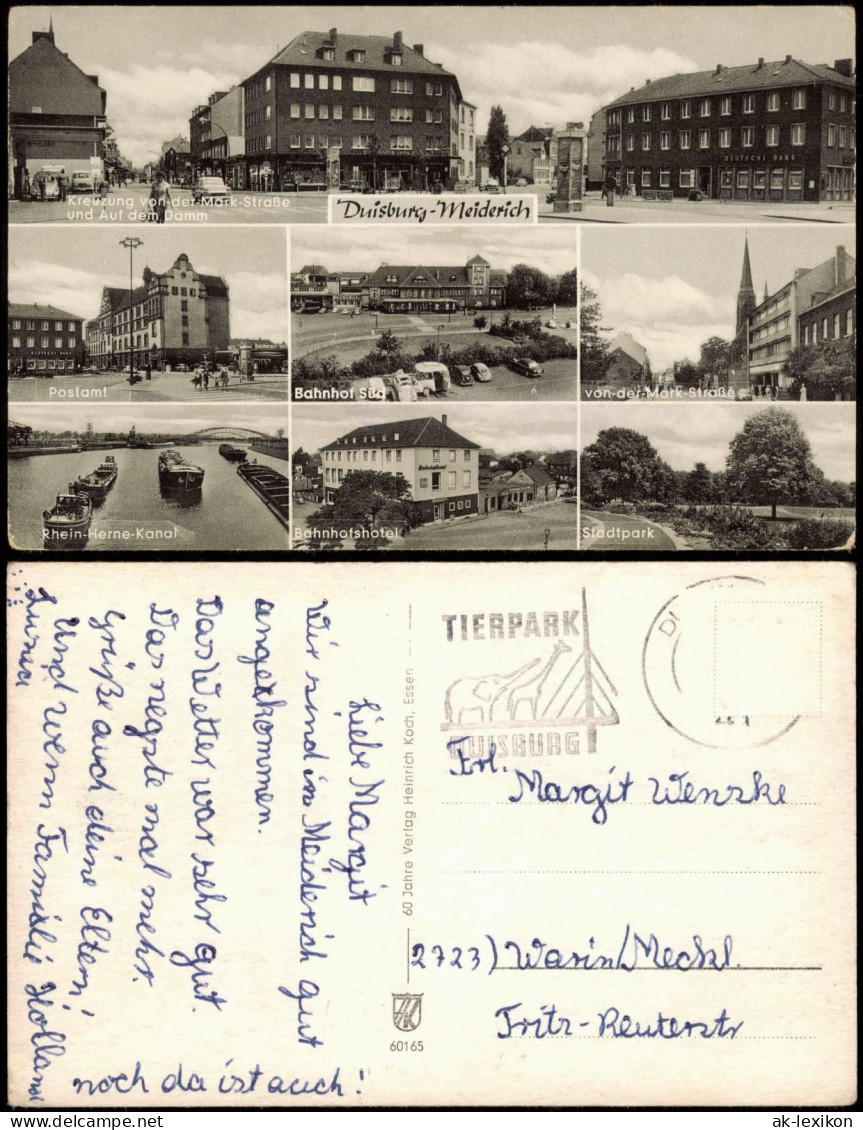 Kreuzung von-der-Mark-Straße
und Auf dem Damm
Duisburg-Meiderich
DEUTSCHE BANK
Postamt
Bahnhof Süd
von-der-Mark-Straße
Rhein-Herne-Kanal
Bahnhofshotel
Stadtpark
Liebe Margut
Wir sind in Meiderich gut
angekommen.
Das Wetter war sehr gut.
Das negste mal mehr.
Grüße auch deine Eltern!
Und wenn Familie Holland
noch da ist auch!
60 Jahre Verlag Heinrich Koch, Essen
60165
TIERPARK
DUISBURG
Frl.
Margit Wenske
2723) Warin/Meckl.
Fritz-Reuterstr
ak-lexikon